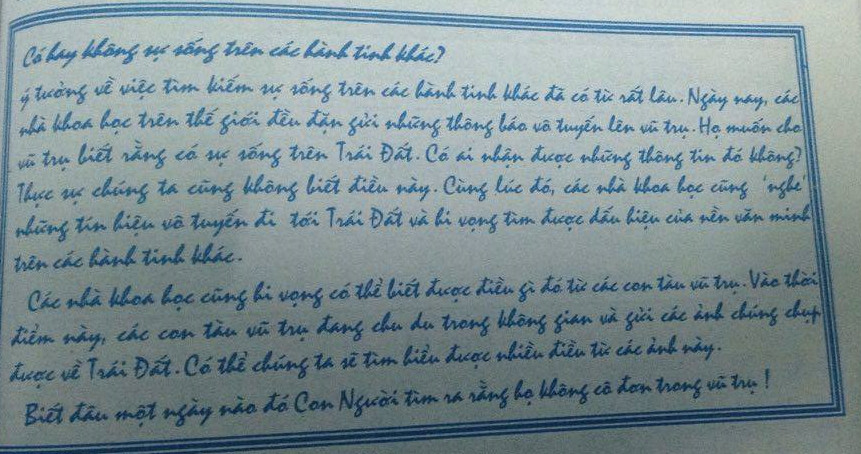 Có hay không sự sống trên các hành tinh khác?
ý tưởng về việc tìm kiếm sự sống trên các hành tinh khác đã có từ rất lâu. Ngày nay, các
nhà khoa học trên thế giới đều đặn gửi những thông báo vô tuyến lên vũ trụ. Họ muốn cho
vũ trụ biết rằng có sự sống trên Trái Đất. Có ai nhận được những thông tin đó không?
Thực sự chúng ta cũng không biết điều này. Cùng lúc đó, các nhà khoa học cũng 'nghe'
những tín hiệu vô tuyến đi tới Trái Đất và hi vọng tìm được dấu hiệu của nền văn minh
trên các hành tinh khác.
Các nhà khoa học cũng hi vọng có thể biết được điều gì đó từ các con tàu vũ trụ. Vào thời
điểm này, các con tàu vũ trụ đang chu du trong không gian và gửi các ảnh chúng chụp
được về Trái Đất. Có thể chúng ta sẽ tìm hiểu được nhiều điều từ các ảnh này.
Biết đâu một ngày nào đó Con Người tìm ra rằng họ không cô đơn trong vũ trụ !